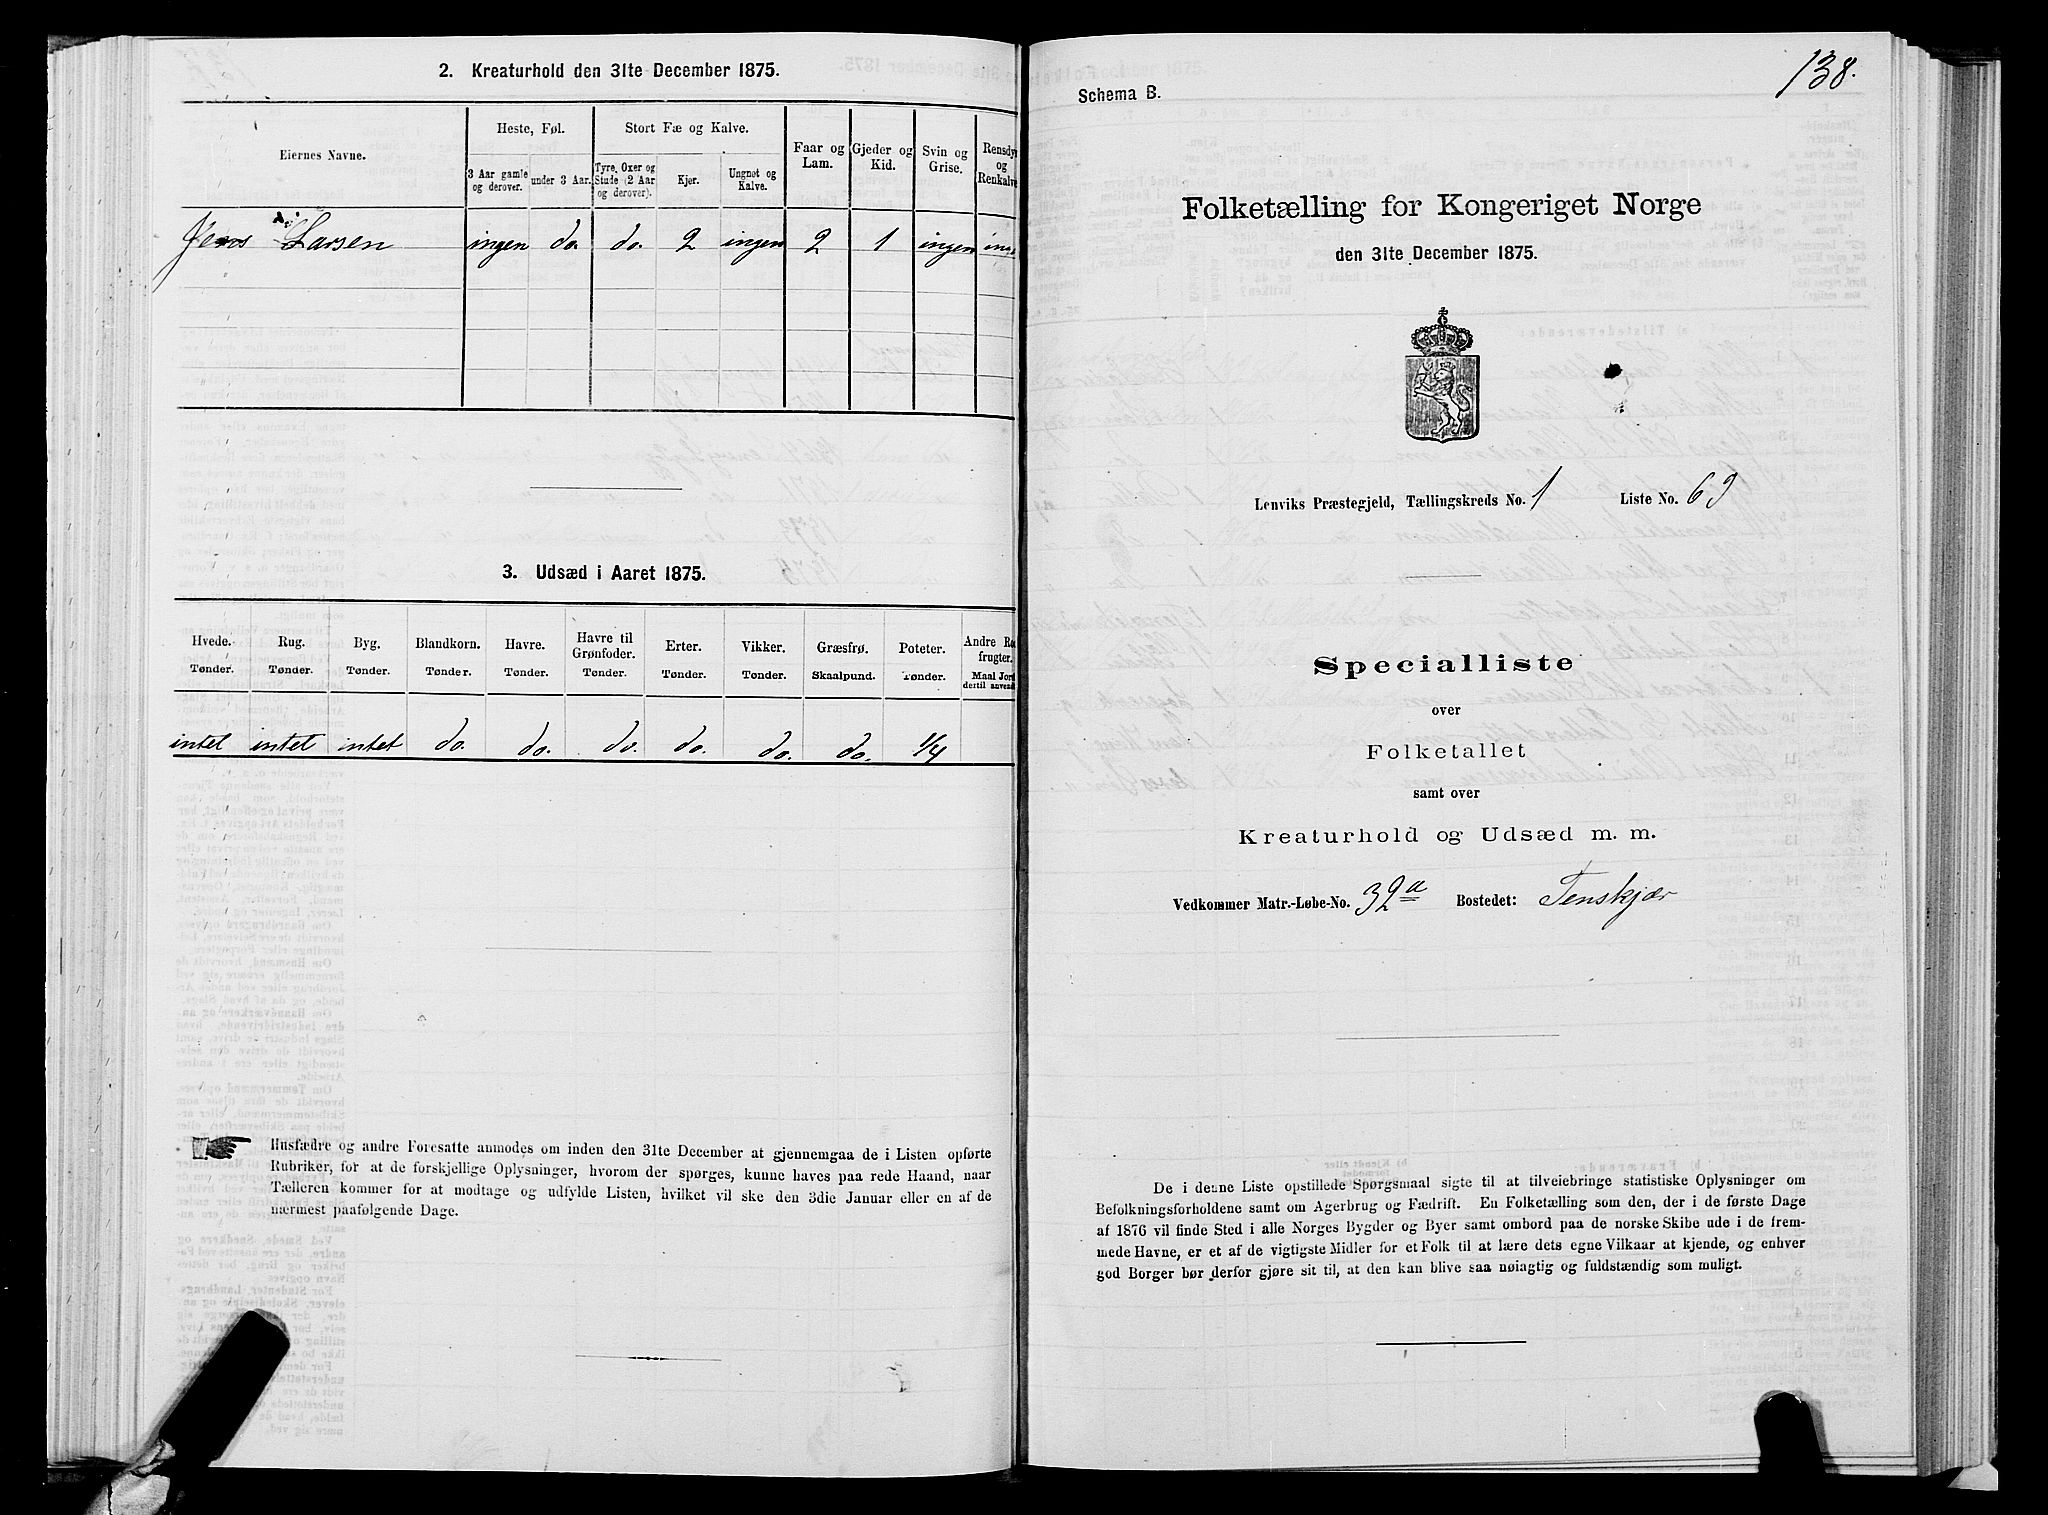 2. Kreaturhold den 31te December 1875.
Eiernes Navne.
Heste, Føl.
Stort Fæ og Kalve.
Faar og Lam.
Gjeder og Kid.
Svin og Grise.
Rensdyr og Renkalve
3 Aar gamle og derover.
under 3 Aar.
Tyre, Oxer og Stude (2 Aar og derover).
Kjer.
Ungnøt og Kalve.
Jens Larsen ingen do. do. 2 ingen 2 1 ingen
3. Udsæd i Aaret 1875.
Hvede. Rug. Byg. Blandkorn. Havre. Havre til Grønfoder. Erter. Vikker. Græsfrø. Poteter. Andre Ro frugter.
Tønder. Tønder. Tønder. Tønder. Tønder. Tønder. Tønder. Tønder. Skaalpund. Tønder. Maal Jord dertil anvend
intet intet intet do. do. do. do. do. do. 1/4
Husfædre og andre Foresatte anmodes om inden den 31te December at gjennemgaa de i Listen opførte
Rubriker, for at de forskjellige Oplysninger, hvorom der spørges, kunne haves paa rede Haand, naar
Tælleren kommer for at modtage og udfylde Listen, hvilket vil ske den 3die Januar eller en af de
nærmest paafølgende Dage.
138.
Schema B.
Folketælling for Kongeriget Norge
den 31te December 1875.
Lenviks Præstegjeld, Tællingskreds No. 1 Liste No. 69
Specialliste
over
Folketallet
samt over
Kreaturhold og Udsæd m. m.
Vedkommer Matr.-Løbe-No. 32a Bostedet: Tenskjær
De i denne Liste opstillede Spørgsmaal sigte til at tilveiebringe statistiske Oplysninger om
Befolkningsforholdene samt om Agerbrug og Fædrift. En Folketælling som den, der i de første Dage
af 1876 vil finde Sted i alle Norges Bygder og Byer samt ombord paa de norske Skibe ude i de frem-
mede Havne, er et af de vigtigste Midler for et Folk til at lære dets egne Vilkaar at kjende, og enhver
god Borger bør derfor gjøre sit til, at den kan blive saa nøiagtig og fuldstændig som muligt.